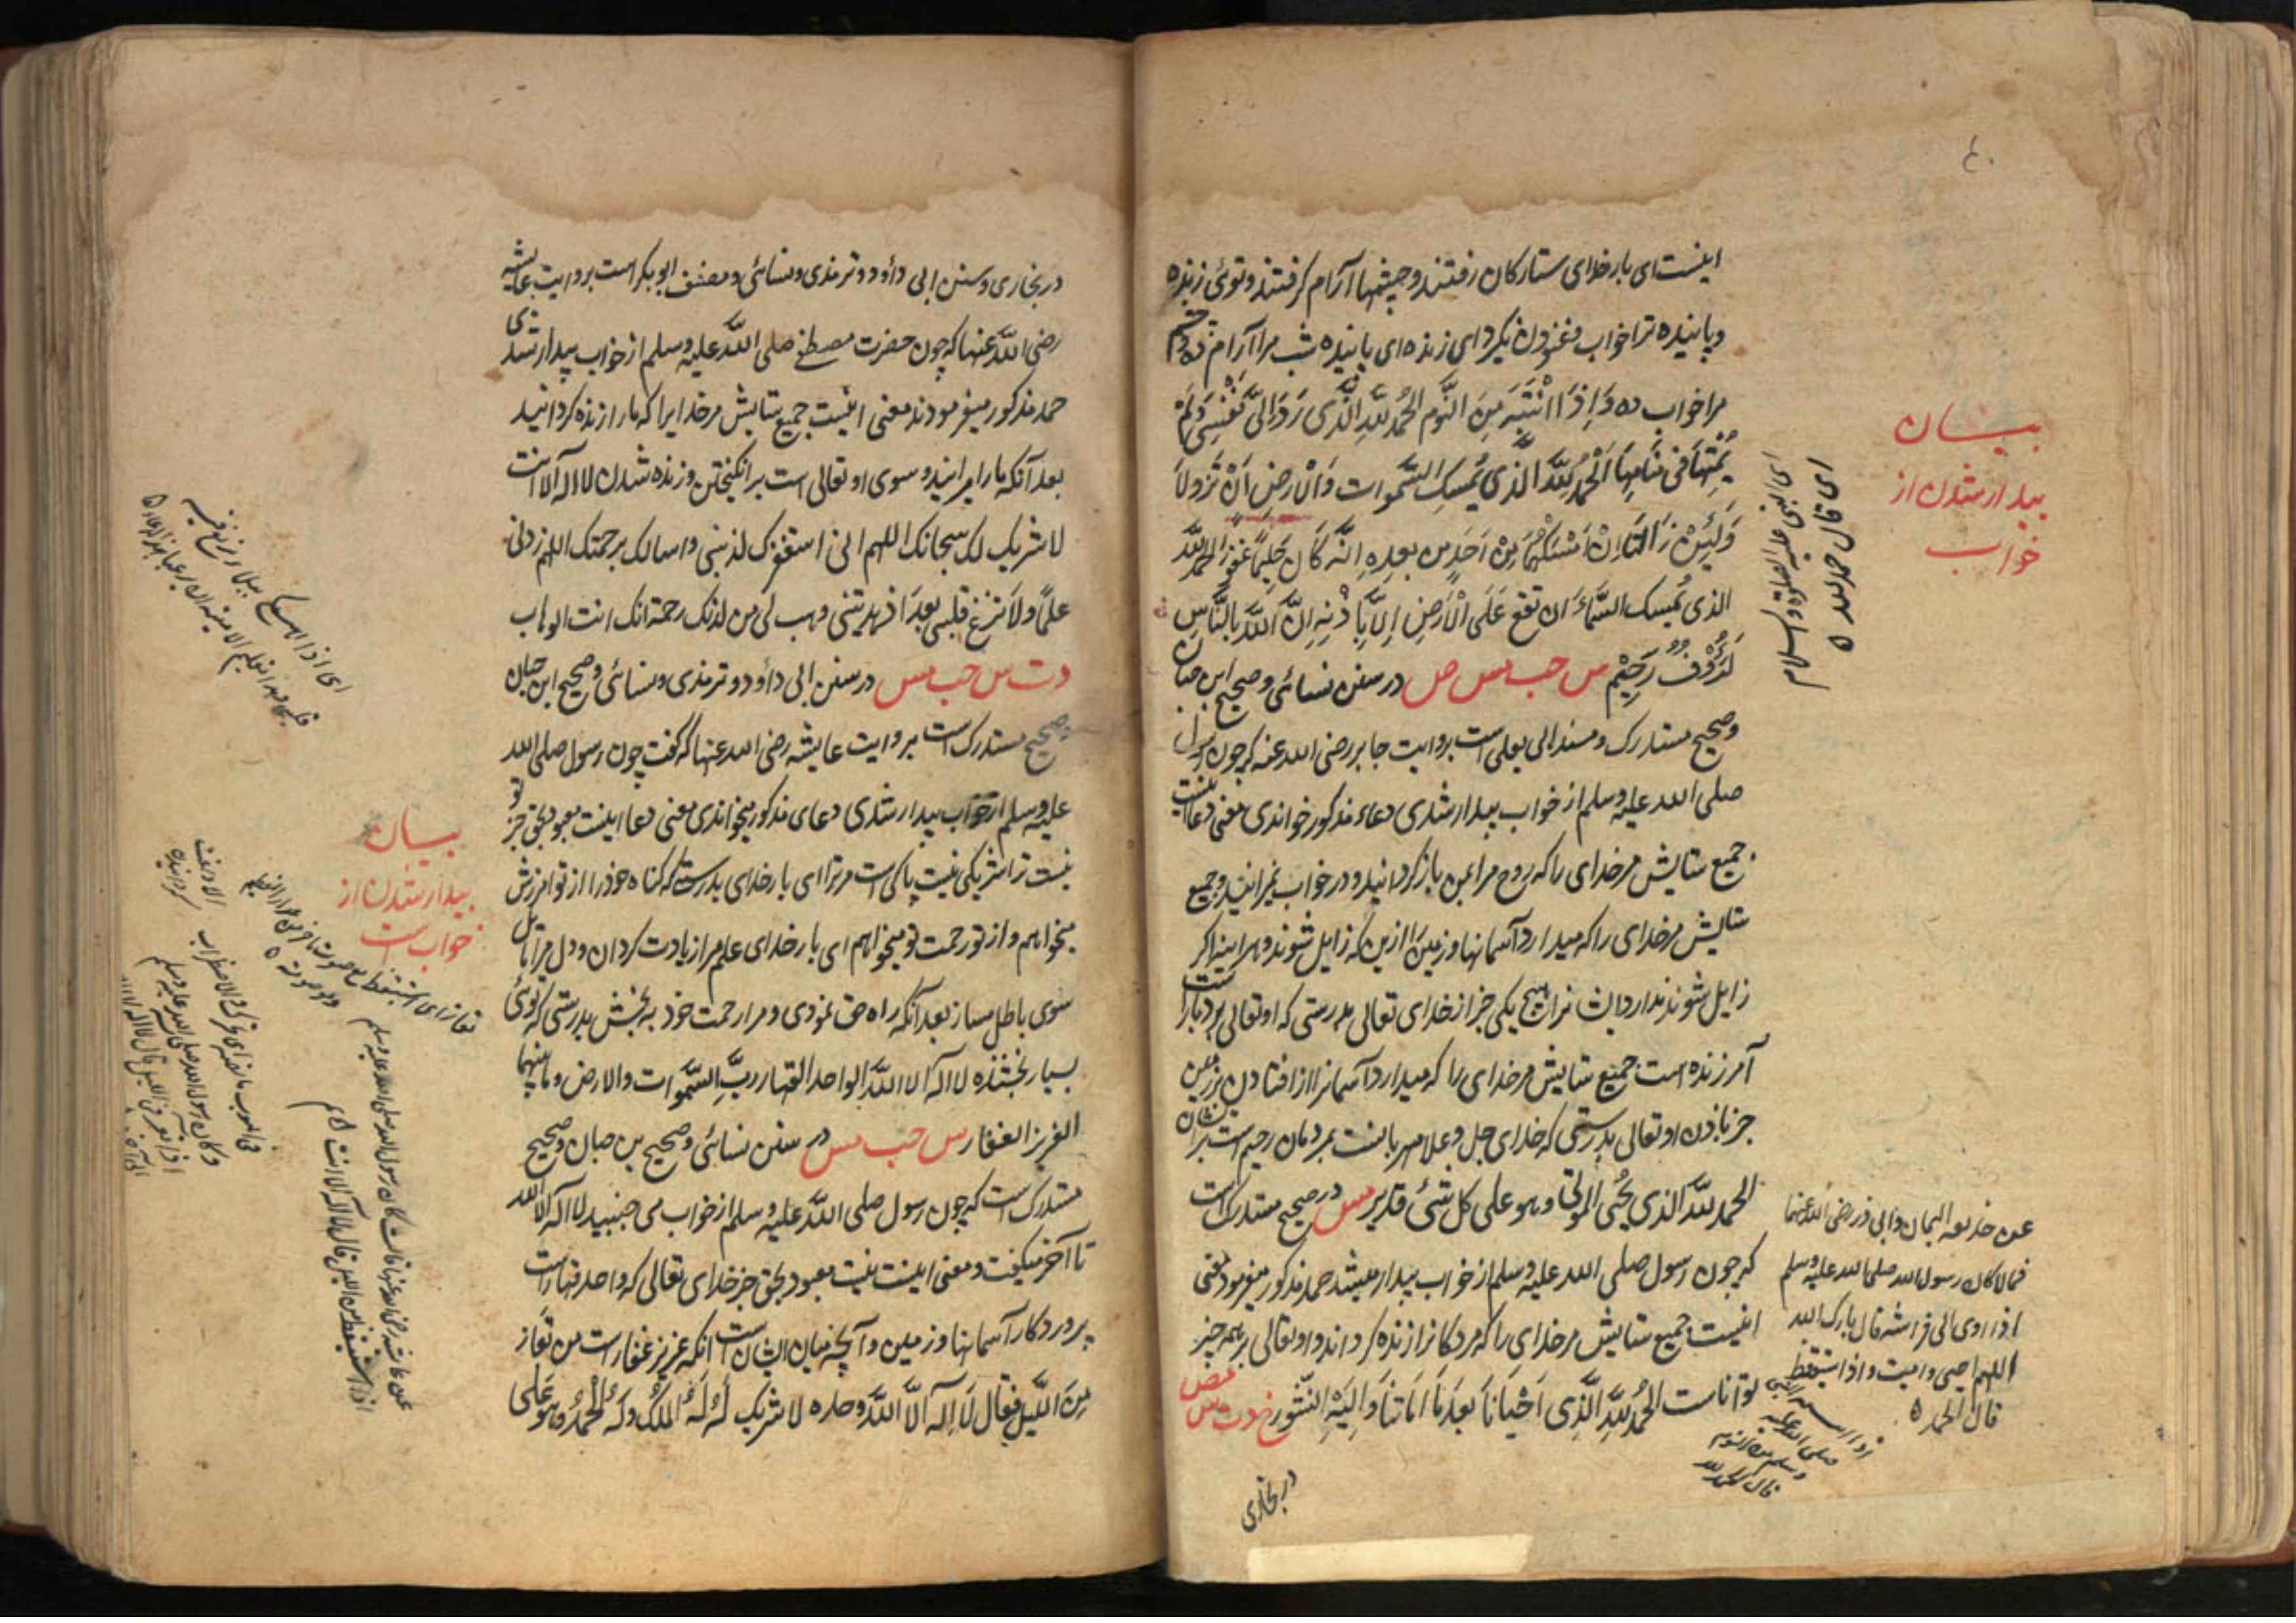 ٤٠
اینست ای بار خدای ستارکان رفتند و چشمها آرام کرفتند و توئی زنده
و پاینده ترا خواب و غنودن نکیرد ای زنده ای پاینده شب مرا آرام ده و چشم
مرا خواب ده وَاِذَا انْتَبَهَ مِنَ النَّوم الحمُدُ للّهِ الَّذی رَدَّ اِلیَّ نَفْسِی وَلَمْ
یُمِتْهَا فی مَنَامِهَا اَلْحَمْدُ للّهِ الَّذی یُمْسِکُ السَّموات وَالْارضَ اَنْ تَزُولَا
وَلَئِنْ زَالَتَا اِنْ اَمْسَکَهُمَا مِنْ اَحَدٍ مِن بعدِهِ اِنَّهُ کَانَ حَلِیمًا غَفُورًا الحمد للّه
الذی یُمسک السَّمَاءَ ان تقع عَلَی الْاَرْضِ اِلَّا بِاذْنِهِ اِنَّ اللّهَ بِالنَّاسِ
لَرَؤُفٌ رَحِیْم س حب مس ص در سنن نسائی و صحیح ابن حبان
و صحیح مستدرک و مسند ابی یعلی است بروایت جابر رضی الله عنه که چون رسول
صلی الله علیه وسلم از خواب بیدار شدی دعاء مذکور خواندی معنی دعا اینست
جمیع ستایش مر خدای را که روح مرا بمن باز کردانید و در خواب نمیرانید و جمیع
ستایش مر خدای را که میدارد آسمانها و زمین را ازین که زایل شوند و هر اینه اکر
زایل شوند ندارد ایشانرا هیچ یکی جز از خدای تعالی بدرستی که او تعالی بردبار است
آمرزنده است جمیع ستایش مر خدای را که میدارد آسمانرا از افتادن بر زمین
جز باذن او تعالی بدرستی که خدای جل وعلا مهربانست بمردمان رحیم است بر ایشان
الحمد للّه الذی یُحْیی الموتی وهو علی کل شئ قدیر مس در صحیح مستدرک است
که چون رسول صلی الله علیه وسلم از خواب بیدار میشد حمد مذکور میفرمود معنی
اینست جمیع ستایش مر خدای را که مردکانرا زنده کرداند و او تعالی بر همه چیز
توانا است الحمُدُ للّهِ الَّذِی اَحْیَانَا بَعدَ مَا اَمَاتَنَا وَاِلَیْهِ النُّشُور خ د ت س مص
در بخاری
بیان
بیدار شدن از
خواب
ای قال حمد لله ٥
ای النبی علیه الصلوة والسلام
عن حذیفه الیمان وابی ذر رضی الله عنهما
قالا کان رسول الله صلی الله علیه وسلم
اذا اوی الی فراشه قال بارک الله
اللهم احیی وامیت واذا استیقظ
قال الحمد ٥
در بخاری و سنن ابی داؤد و ترمذی و نسائی و مصنف ابو بکر است بروایت عایشه
رضی اللّه عنها که چون حضرت مصطفی صلی اللّه علیه وسلم از خواب بیدار شدندی
حمد مذکور میفرمودند معنی اینست جمیع ستایش مر خدایرا که مارا زنده کردانید
بعد آنکه مارا میرانید و سوی او تعالی است برانکیختن و زنده شدن لا اله الا انت
لا شریک لک سبحانک اللهم انی استغفرک لذنبی واسالک برحمتک اللهم زدنی
علمًا ولا تزغ قلبی بعد اذ هدیتنی وهب لی من لدنک رحمة انک انت الوهاب
د ت س حب مس در سنن ابی داؤد و ترمذی و نسائی و صحیح ابن حبان
و صحیح مستدرک است بروایت عایشه رضی الله عنها که کفت چون رسول صلی الله
علیه وسلم از خواب بیدار شدی دعای مذکور میخواندی معنی دعا اینست معبود بحق جز تو
نیست ترا شریکی نیست پاکی است مر ترا ای بار خدای بدرستی که کناه خود را از تو امرزش
میخواهم و از تو رحمت تو میخواهم ای بار خدای علم مرا زیادت کردان و دل مرا مایل
سوی باطل مساز بعد آنکه راه حق نمودی و مرا رحمت خود به بخش بدرستی که توئی
بسیار بخشنده لا اله الا اللّه الواحد القهار ربّ السَّموات والارض وما بینهما
العزیز الغفار س حب مس در سنن نسائی و صحیح بن حبان و صحیح
مستدرک است که چون رسول صلی اللّه علیه وسلم از خواب می جنبید لا اله الا الله
تا آخر میکفت و معنی اینست نیست معبود بحق جز خدای تعالی که واحد قهار است
پروردکار آسمانها و زمین و آنچه میان ایشان است انکه عزیز غفار است من تَعَارّ
مِنَ اللَّیلِ فقَال لَا اِلهَ اِلَّا اللَّهُ وحده لا شریک لَهُ لَهُ الْمُلْکُ وَلَهُ الْحَمْدُ وهو عَلی
بیان
بیدار شدن از
خواب است
عن عائشه رضی الله عنها قالت کان رسول الله صلی الله علیه وسلم
اذا استیقظ من اللیل قال لا اله الا انت
وکان رسول الله صلی الله علیه وسلم